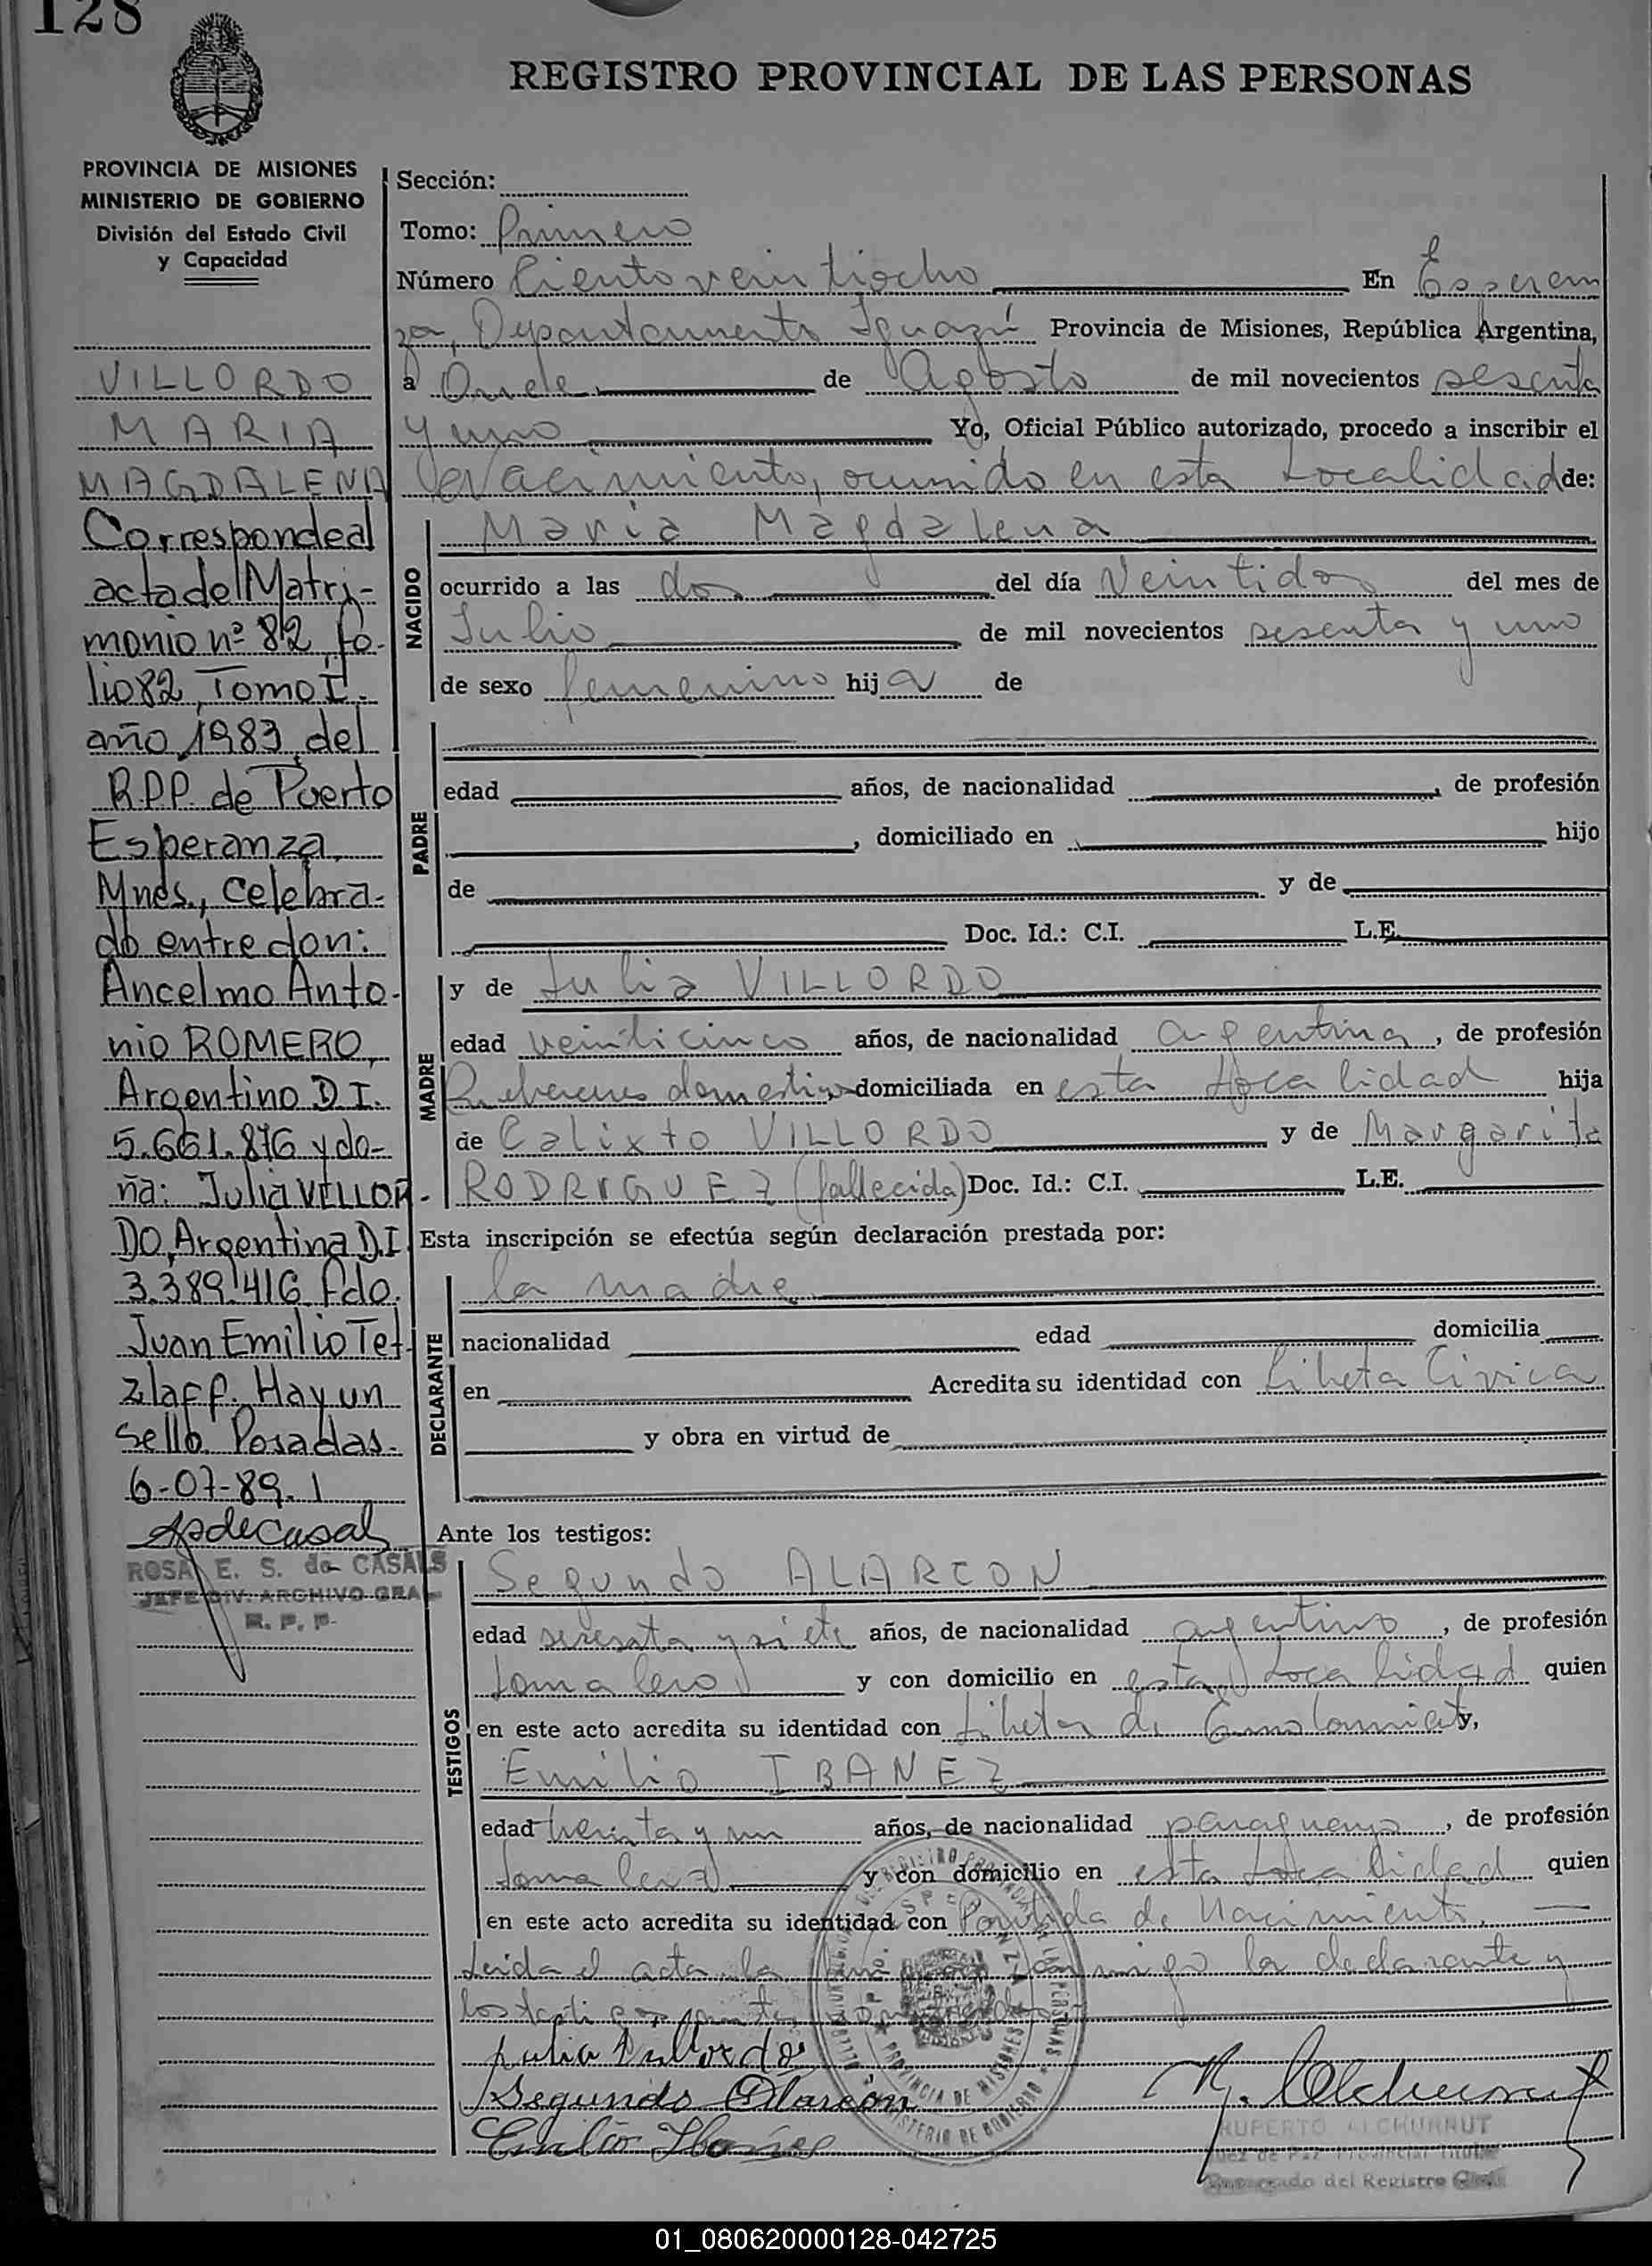 128
REGISTRO PROVINCIAL DE LAS PERSONAS
PROVINCIA DE MISIONES
MINISTERIO DE GOBIERNO
División del Estado Civil
y Capacidad
VILLORDO
MARIA
MAGDALENA
Correspondeal
acta del Matri-
monio nº 82, fo-
lio 82, Tomo I.
año 1983, del
R.P.P. de Puerto
Esperanza,
Mnes., celebra-
do entre don:
Ancelmo Anto-
nio ROMERO,
Argentino D.I.
5.661.876 y do-
ña: Julia VILLOR-
DO, Argentina D.I.
3.389.416 fdo.
Juan Emilio Tet
zlaff. Hay un
sello. Posadas.
6-07-89.
ROSA E. S. de CASALS
JEFE DIV. ARCHIVO GRAL
R. P. P.
Sección:
Tomo: Primero
Número Ciento veintiocho En Esperan
za, Departamento Iguazú Provincia de Misiones, República Argentina,
a Once de Agosto de mil novecientos sesenta
y uno Yo, Oficial Público autorizado, procedo a inscribir el
Nacimiento, ocurrido en esta Localidad de:
NACIDO
Maria Magdalena
ocurrido a las dos del día Veintidos del mes de
Julio de mil novecientos sesenta y uno
de sexo femenino hija de
PADRE
edad años, de nacionalidad , de profesión
, domiciliado en hijo
de y de
Doc. Id.: C.I. L.E.
MADRE
y de Julia VILLORDO
edad veinticinco años, de nacionalidad argentina, de profesión
domiciliada en esta Localidad hija
de Calixto VILLORDO y de Margarita
RODRIGUEZ (fallecida) Doc. Id.: C.I. L.E.
Esta inscripción se efectúa según declaración prestada por:
DECLARANTE
la madre
nacionalidad edad domicilia
en Acredita su identidad con Libreta Civica
y obra en virtud de
Ante los testigos:
TESTIGOS
Segundo ALARCON
edad sesenta y siete años, de nacionalidad argentino, de profesión
Jornalero y con domicilio en esta Localidad quien
en este acto acredita su identidad con Libreta de Enrolamiento y,
Emilio IBAÑEZ
edad treinta y un años, de nacionalidad paraguayo, de profesión
Jornalero y con domicilio en esta Localidad quien
en este acto acredita su identidad con Partida de Nacimiento.
Leida el acta la conmigo la declarante y
los testigos
Julia Villordo
Segundo Alarcón
Emilio Ibañez
PROVINCIA DE MISIONES
MINISTERIO DE GOBIERNO
RUPERTO ALCHURRUT
Juez de Paz Provincial Titular
Encargado del Registro Civil
01_080620000128-042725